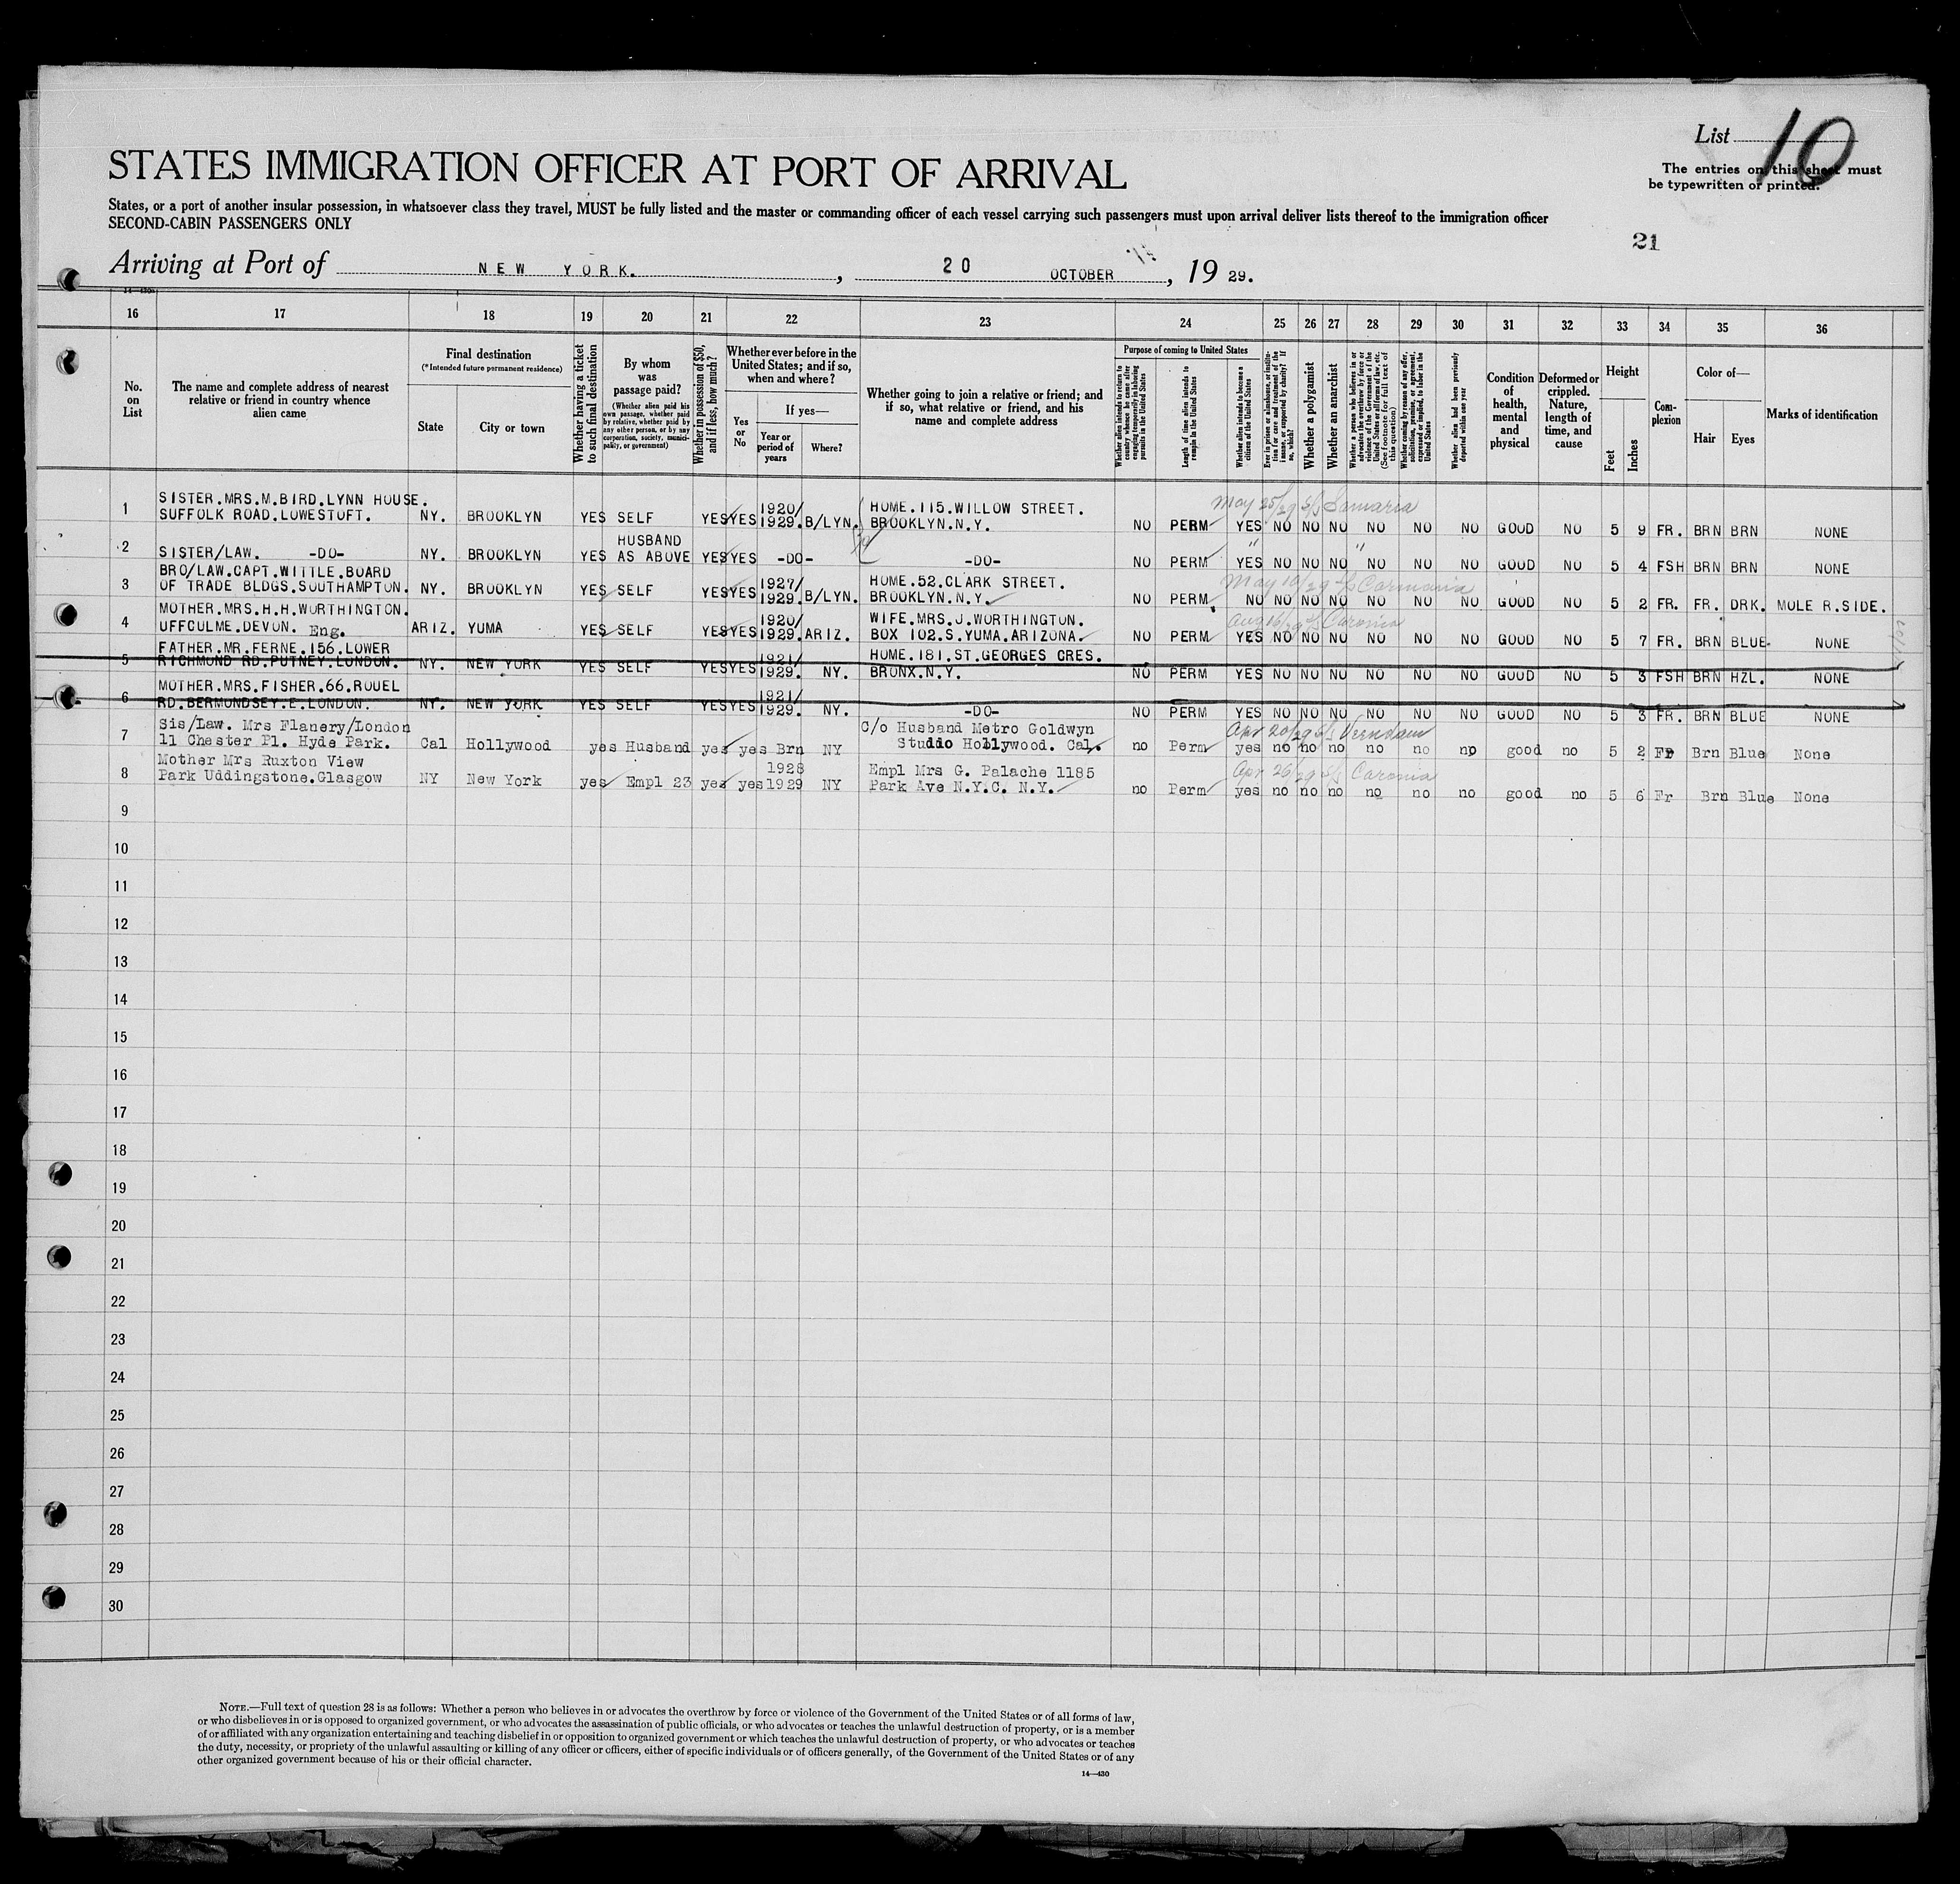 List 10
The entries on this sheet must
be typewritten or printed.
STATES IMMIGRATION OFFICER AT PORT OF ARRIVAL
States, or a port of another insular possession, in whatsoever class they travel, MUST be fully listed and the master or commanding officer of each vessel carrying such passengers must upon arrival deliver lists thereof to the immigration officer
SECOND-CABIN PASSENGERS ONLY
21
Arriving at Port of NEW YORK. , 20 OCTOBER , 19 29.
16 17 18 19 20 21 22 23 24 25 26 27 28 29 30 31 32 33 34 35 36
No. on List
The name and complete address of nearest relative or friend in country whence alien came
Final destination
(*Intended future permanent residence)
State
City or town
Whether having a ticket to such final destination
By whom was passage paid?
(Whether alien paid his own passage, whether paid by relative, whether paid by any other person, or by any corporation, society, municipality, or government)
Whether in possession of $50, and if less, how much?
Whether ever before in the United States; and if so, when and where?
Yes or No
If yes—
Year or period of years
Where?
Whether going to join a relative or friend; and if so, what relative or friend, and his name and complete address
Purpose of coming to United States
Whether alien intends to return to country whence he came after engaging temporarily in laboring pursuits in the United States
Length of time alien intends to remain in the United States
Whether alien intends to become a citizen of the United States
Ever in prison or almshouse, or institution for care and treatment of the insane, or supported by charity? If so, which?
Whether a polygamist
Whether an anarchist
Whether a person who believes in or advocates the overthrow by force or violence of the Government of the United States or all forms of law, etc. (See footnote for full text of this question)
Whether coming by reason of any offer, solicitation, promise, or agreement, expressed or implied, to labor in the United States
Whether alien had been previously deported within one year
Condition of health, mental and physical
Deformed or crippled. Nature, length of time, and cause
Height
Feet
Inches
Complexion
Color of—
Hair
Eyes
Marks of identification
May 25/29 S/S Samaria
1 SISTER.MRS.M.BIRD.LYNN HOUSE. 1920/ HOME.115.WILLOW STREET.
SUFFOLK ROAD.LOWESTOFT. NY. BROOKLYN YES SELF YES YES 1929. B/LYN. BROOKLYN.N.Y. NO PERM YES NO NO NO NO NO NO GOOD NO 5 9 FR. BRN BRN NONE
2 HUSBAND " "
SISTER/LAW. -DO- NY. BROOKLYN YES AS ABOVE YES YES -DO- -DO- NO PERM YES NO NO NO NO NO NO GOOD NO 5 4 FSH BRN BRN NONE
3 BRO/LAW.CAPT.WITTLE.BOARD 1927/ HOME.52.CLARK STREET. May 10/29 S/S Carmania
OF TRADE BLDGS.SOUTHAMPTON. NY. BROOKLYN YES SELF YES YES 1929. B/LYN. BROOKLYN.N.Y. NO PERM NO NO NO NO NO NO NO GOOD NO 5 2 FR. FR. DRK. MOLE R.SIDE.
4 MOTHER.MRS.H.H.WORTHINGTON. 1920/ WIFE.MRS.J.WORTHINGTON. Aug 16/29 S/S Caronia
UFFCULME.DEVON. Eng. ARIZ. YUMA YES SELF YES YES 1929. ARIZ. BOX 102.S.YUMA.ARIZONA. NO PERM YES NO NO NO NO NO NO GOOD NO 5 7 FR. BRN BLUE NONE
5 FATHER.MR.FERNE.156.LOWER 1921/ HOME.181.ST.GEORGES CRES.
RICHMOND RD.PUTNEY.LONDON. NY. NEW YORK YES SELF YES YES 1929. NY. BRONX.N.Y. NO PERM YES NO NO NO NO NO NO GOOD NO 5 3 FSH BRN HZL. NONE
6 MOTHER.MRS.FISHER.66.ROUEL 1921/
RD.BERMONDSEY.E.LONDON. NY. NEW YORK YES SELF YES YES 1929. NY. -DO- NO PERM YES NO NO NO NO NO NO GOOD NO 5 3 FR. BRN BLUE NONE
7 Sis/Law. Mrs Flanery/London C/o Husband Metro Goldwyn Apr 20/29 S/S Veendam
11 Chester Pl. Hyde Park. Cal Hollywood yes Husband yes yes Brn NY Studio Hollywood. Cal. no Perm yes no no no no no no good no 5 2 Fr Brn Blue None
8 Mother Mrs Ruxton View 1928 Empl Mrs G. Palache 1185 Apr 26/29 S/S Caronia
Park Uddingstone.Glasgow NY New York yes Empl 23 yes yes 1929 NY Park Ave N.Y.C. N.Y. no Perm yes no no no no no no good no 5 6 Fr Brn Blue None
9
10
11
12
13
14
15
16
17
18
19
20
21
22
23
24
25
26
27
28
29
30
NOTE.—Full text of question 28 is as follows: Whether a person who believes in or advocates the overthrow by force or violence of the Government of the United States or of all forms of law,
or who disbelieves in or is opposed to organized government, or who advocates the assassination of public officials, or who advocates or teaches the unlawful destruction of property, or is a member
of or affiliated with any organization entertaining and teaching disbelief in or opposition to organized government or which teaches the unlawful destruction of property, or who advocates or teaches
the duty, necessity, or propriety of the unlawful assaulting or killing of any officer or officers, either of specific individuals or of officers generally, of the Government of the United States or of any
other organized government because of his or their official character.
14—430